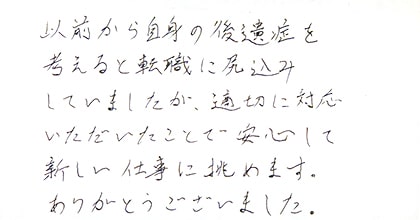 以前から自身の後遺症を
考えると転職に尻込み
していましたが、適切に対応
いただいたことで安心して
新しい仕事に挑めます。
ありがとうございました。